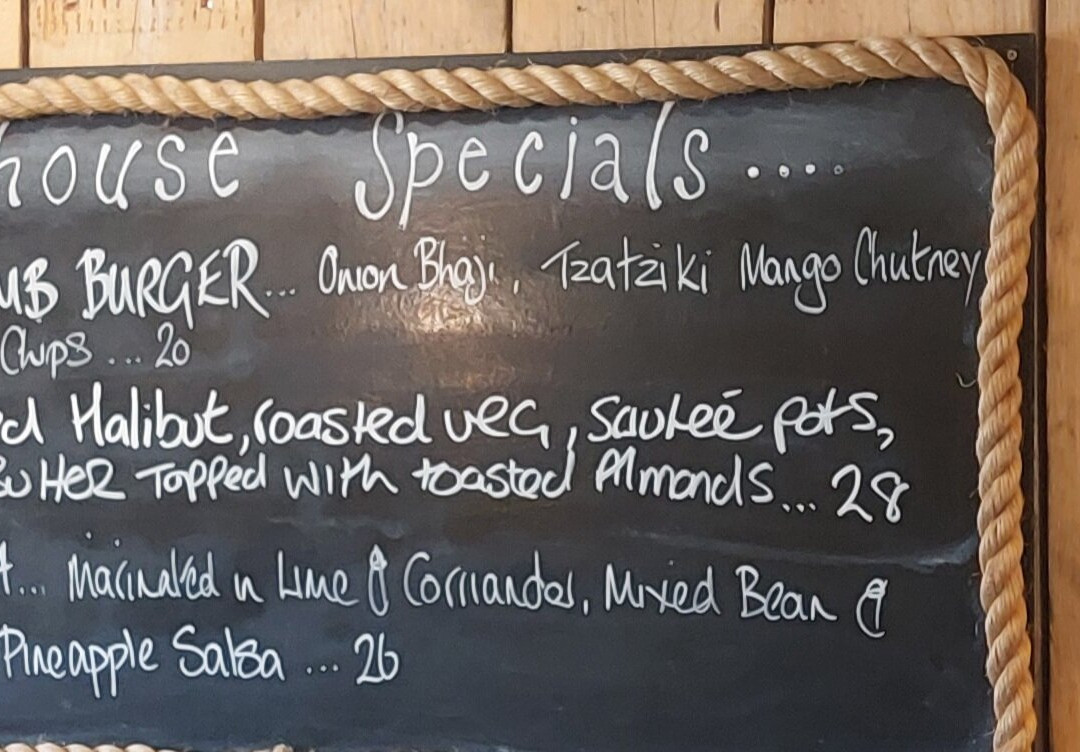 house Specials....
MB BURGER... Onion Bhaji, Tzatziki Mango Chutney
Chips ... 20
ed Halibut, roasted veg, sauteé pots,
Butter Topped with toasted Almonds... 28
t... Marinated in Lime & Corriander, Mixed Bean &
Pineapple Salsa ... 26